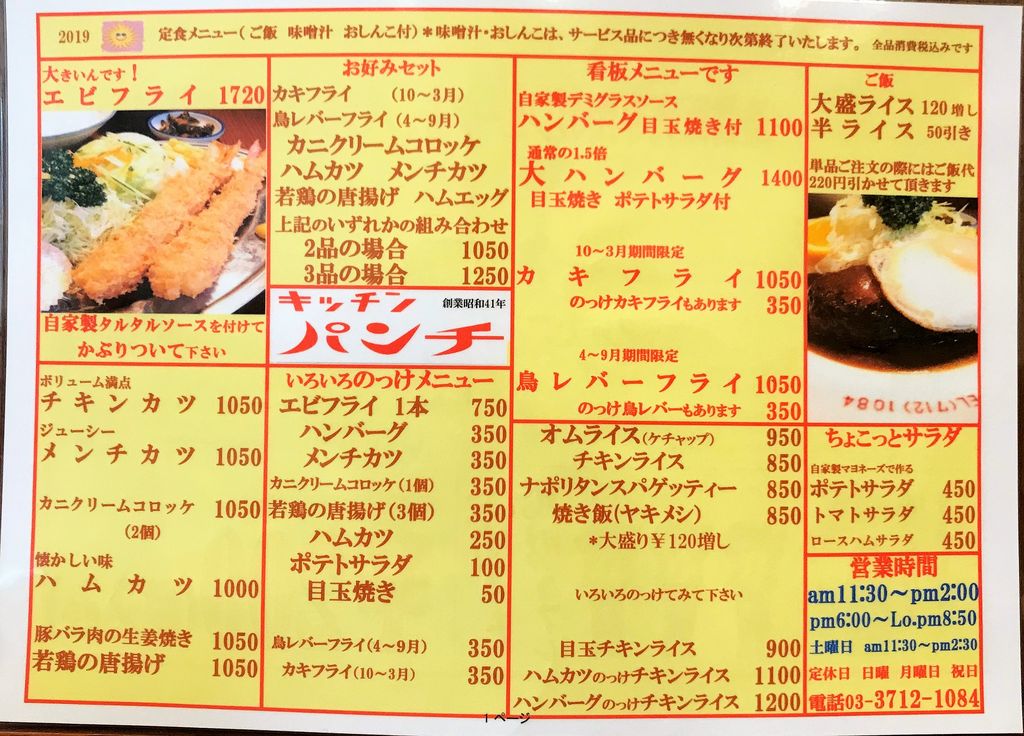 2019 定食メニュー( ご飯 味噌汁 おしんこ付)＊味噌汁・おしんこは、サービス品につき無くなり次第終了いたします。 全品消費税込みです
大きいんです！
エビフライ 1720
自家製タルタルソースを付けて
かぶりついて下さい
お好みセット
カキフライ (10～3月)
鳥レバーフライ(4～9月)
カニクリームコロッケ
ハムカツ メンチカツ
若鶏の唐揚げ ハムエッグ
上記のいずれかの組み合わせ
2品の場合 1050
3品の場合 1250
キッチン 創業昭和41年
パンチ
看板メニューです
自家製デミグラスソース
ハンバーグ目玉焼き付 1100
通常の1.5倍
大ハンバーグ 1400
目玉焼き ポテトサラダ付
10～3月期間限定
カキフライ 1050
のっけカキフライもあります 350
4～9月期間限定
鳥レバーフライ 1050
のっけ鳥レバーもあります 350
ご飯
大盛ライス 120増し
半ライス 50引き
単品ご注文の際にはご飯代
220円引かせて頂きます
EL(712)1084
ボリューム満点
チキンカツ 1050
ジューシー
メンチカツ 1050
カニクリームコロッケ 1050
(2個)
懐かしい味
ハムカツ 1000
豚バラ肉の生姜焼き 1050
若鶏の唐揚げ 1050
いろいろのっけメニュー
エビフライ 1本 750
ハンバーグ 350
メンチカツ 350
カニクリームコロッケ(1個) 350
若鶏の唐揚げ(3個) 350
ハムカツ 250
ポテトサラダ 100
目玉焼き 50
鳥レバーフライ(4～9月) 350
カキフライ(10～3月) 350
オムライス(ケチャップ) 950
チキンライス 850
ナポリタンスパゲッティー 850
焼き飯(ヤキメシ) 850
＊大盛り￥120増し
いろいろのっけてみて下さい
目玉チキンライス 900
ハムカツのっけチキンライス 1100
ハンバーグのっけチキンライス 1200
ちょこっとサラダ
自家製マヨネーズで作る
ポテトサラダ 450
トマトサラダ 450
ロースハムサラダ 450
営業時間
am11:30～pm2:00
pm6:00～Lo.pm8:50
土曜日 am11:30～pm2:30
定休日 日曜 月曜日 祝日
電話03-3712-1084
1 ページ